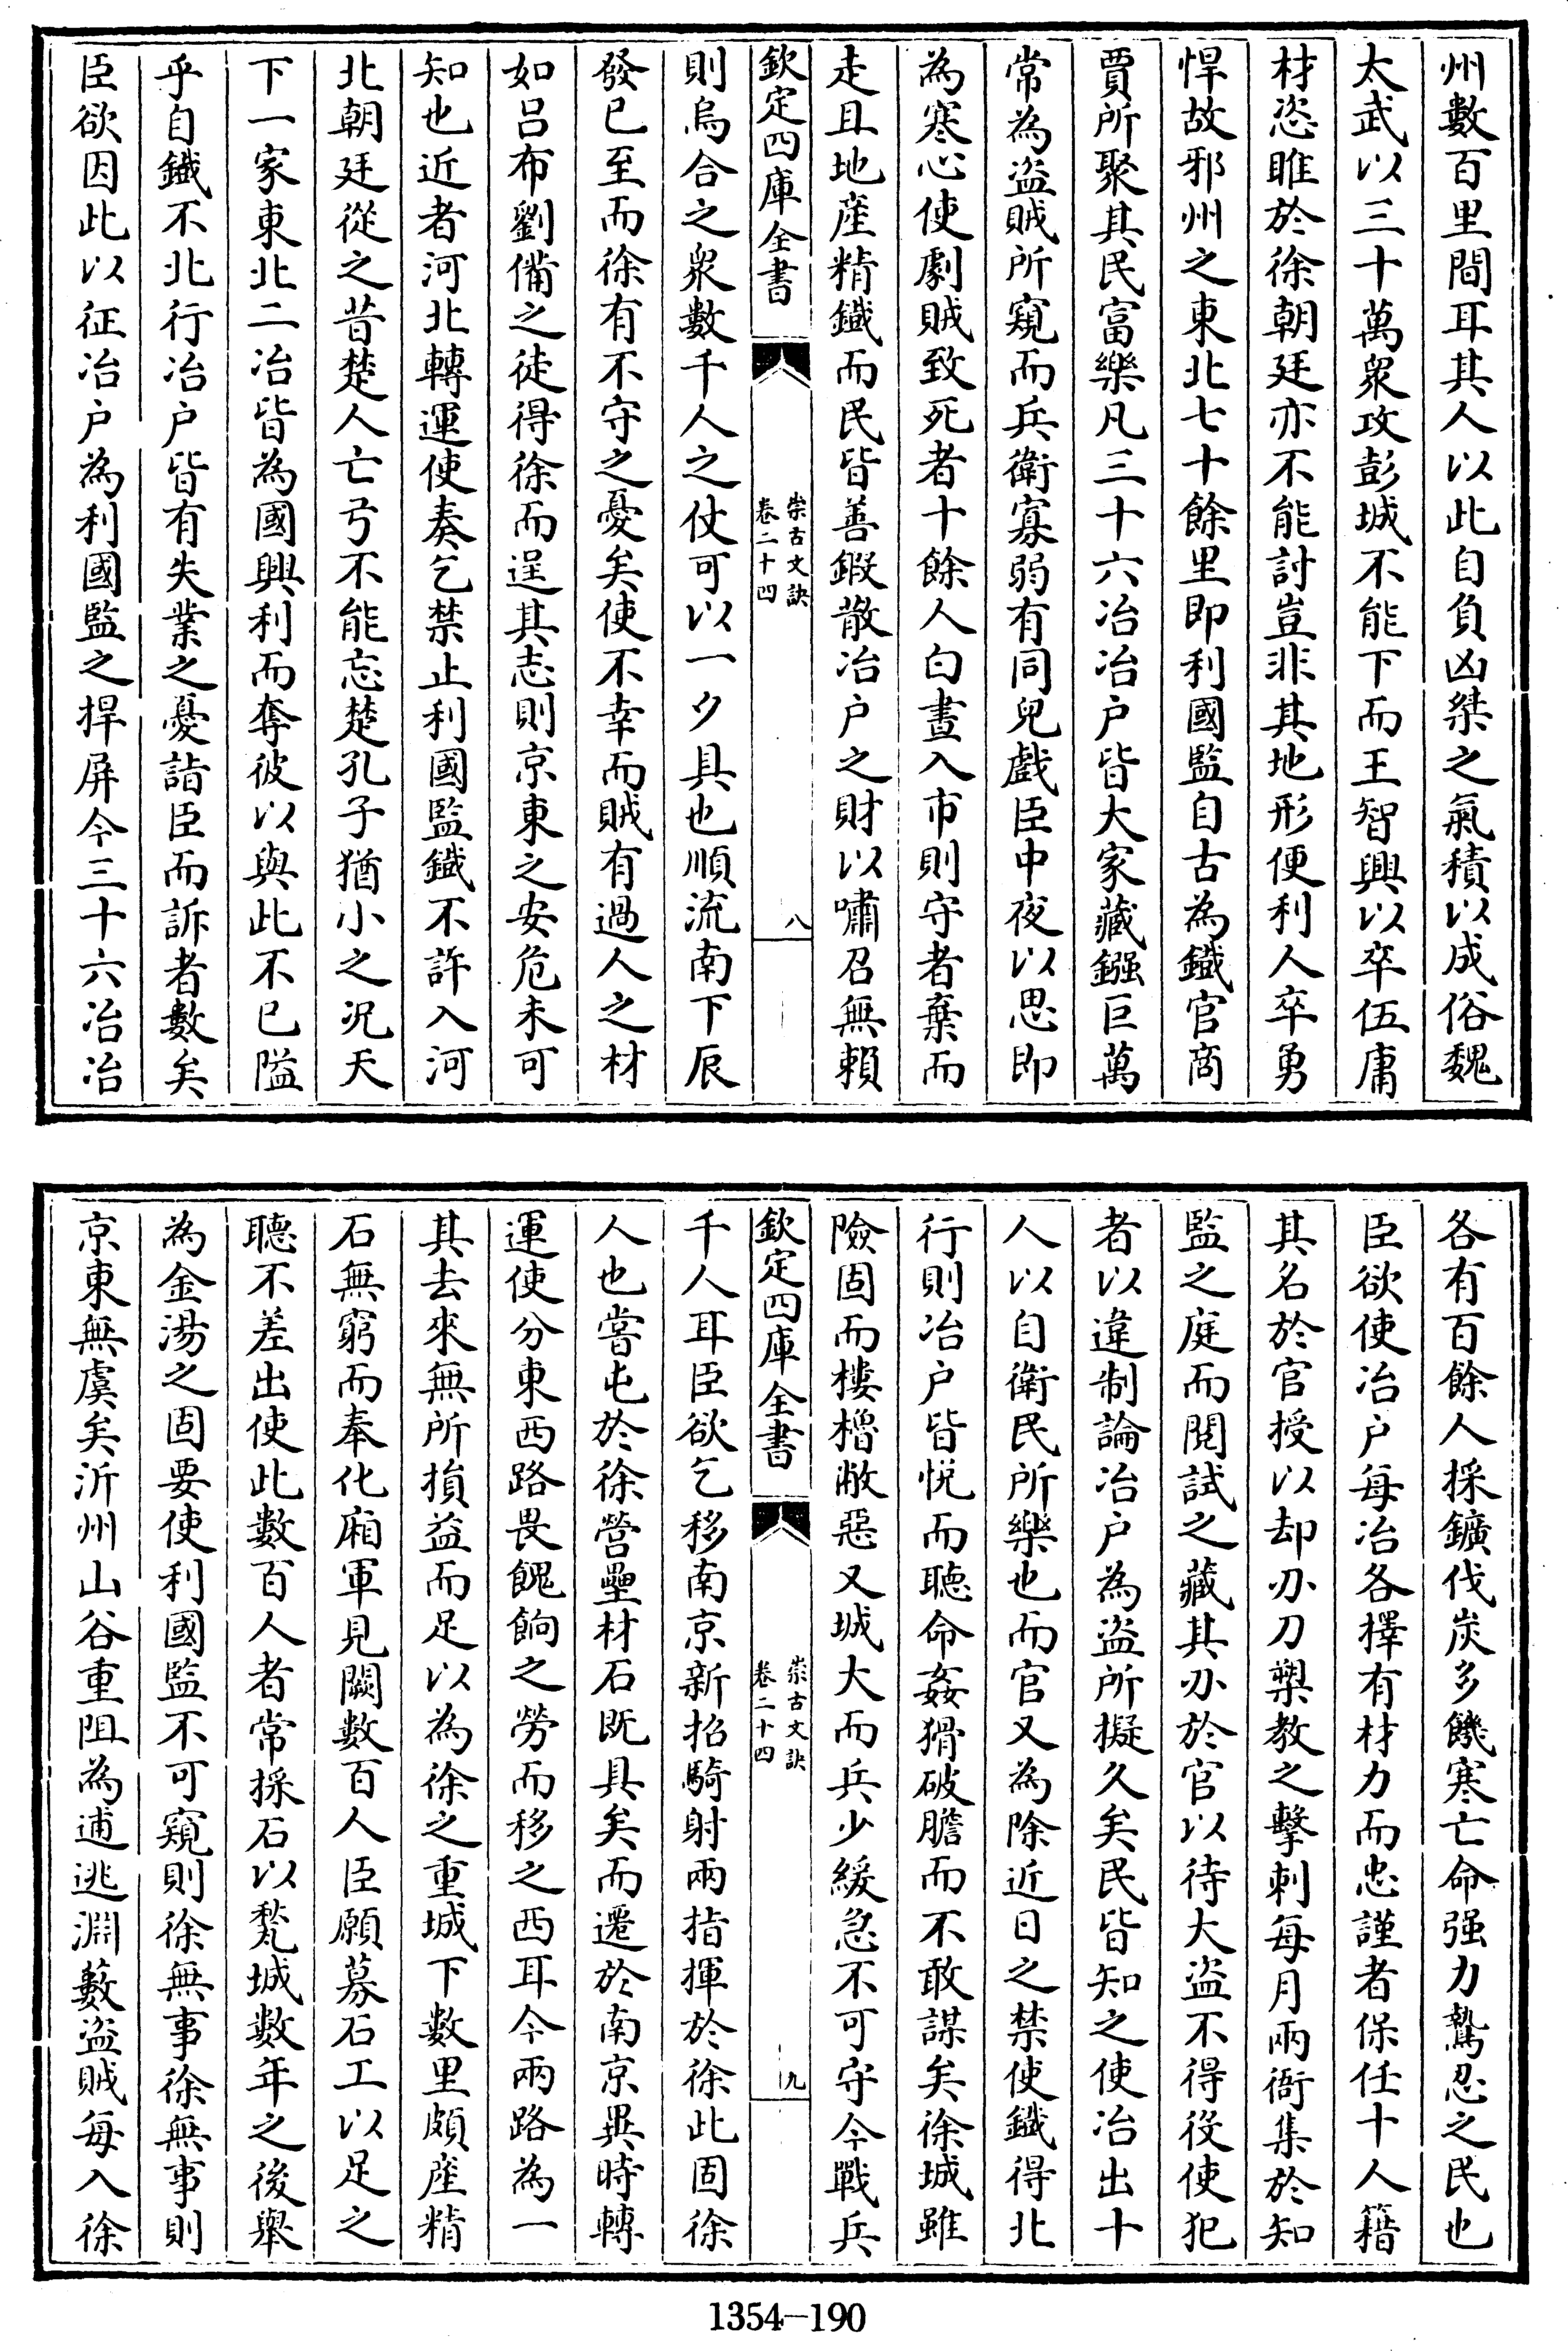 州數百里間耳其人以此自負凶桀之氣積以成俗魏
太武以三十萬衆攻彭城不能下而王智興以卒伍庸
材恣睢於徐朝廷亦不能討豈非其地形便利人卒勇
悍故邪州之東北七十餘里即利國監自古為鐵官商
賈所聚其民富樂凡三十六冶冶户皆大家藏鏹巨萬
常為盜賊所窺而兵衛寡弱有同兒戲臣中夜以思即
為寒心使劇賊致死者十餘人白晝入市則守者棄而
走且地產精鐵而民皆善鍜散冶户之財以嘯召無賴
欽定四庫全書
崇古文訣
卷二十四
八
則烏合之衆數千人之仗可以一夕具也順流南下辰
發巳至而徐有不守之憂矣使不幸而賊有過人之材
如吕布劉備之徒得徐而逞其志則京東之安危未可
知也近者河北轉運使奏乞禁止利國監鐵不許入河
北朝廷從之昔楚人亡弓不能忘楚孔子猶小之况天
下一家東北二冶皆為國興利而奪彼以與此不已隘
乎自鐵不北行冶户皆有失業之憂詣臣而訴者數矣
臣欲因此以征冶户為利國監之捍屏今三十六冶冶
各有百餘人採鑛伐炭多饑寒亡命强力鷙忍之民也
臣欲使冶户每冶各擇有材力而忠謹者保任十人籍
其名於官授以却刃刀槊教之擊刺每月兩衙集於知
監之庭而閲試之藏其刃於官以待大盜不得役使犯
者以違制論冶户為盜所擬久矣民皆知之使冶出十
人以自衛民所樂也而官又為除近日之禁使鐵得北
行則冶户皆悦而聽命姦猾破膽而不敢謀矣徐城雖
險固而樓櫓敝惡又城大而兵少緩急不可守今戰兵
欽定四庫全書
崇古文訣
卷二十四
九
千人耳臣欲乞移南京新招騎射兩指揮於徐此固徐
人也嘗屯於徐營壘材石既具矣而遷於南京異時轉
運使分東西路畏餽餉之勞而移之西耳今兩路為一
其去來無所損益而足以為徐之重城下數里頗産精
石無窮而奉化廂軍見闕數百人臣願募石工以足之
聽不差出使此數百人者常採石以甃城數年之後舉
為金湯之固要使利國監不可窺則徐無事徐無事則
京東無虞矣沂州山谷重阻為逋逃淵藪盜賊每入徐
1354-190